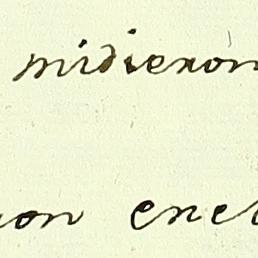 midieron
on enel